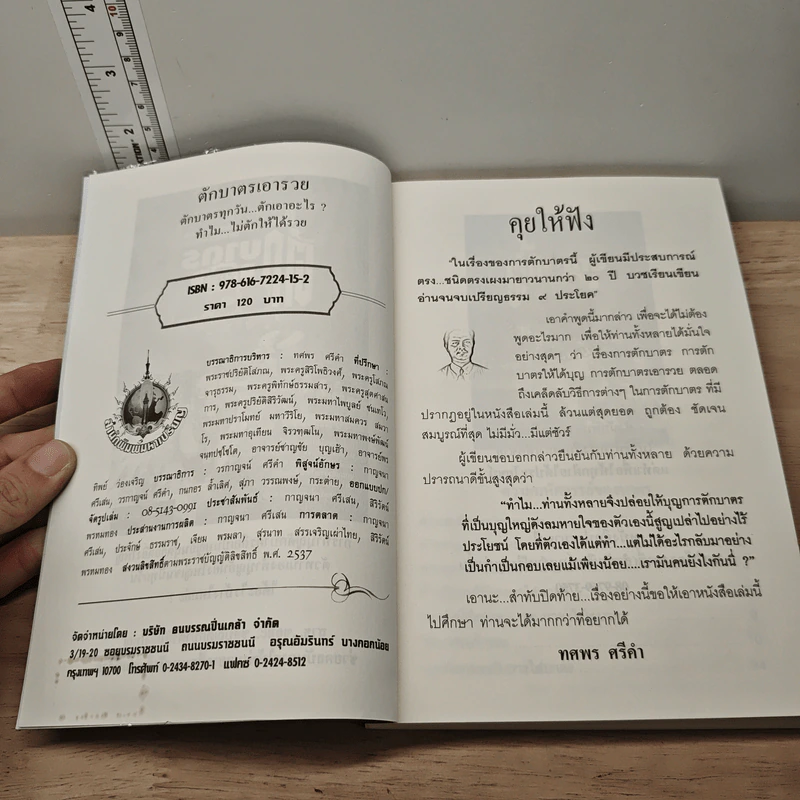 ตักบาตรเอารวย
ตักบาตรทุกวัน...ตักเอาอะไร ?
ทำไม...ไม่ตักให้ได้รวย
ISBN : 978-616-7224-15-2
ราคา 120 บาท
บรรณาธิการบริหาร : ทศพร ศรีคำ ที่ปรึกษา :
พระราชปริยัติโสภณ, พระครูสิริโพธิวงศ์, พระครูโสภณ
จารุธรรม, พระครูพิทักษ์ธรรมสาร, พระครูสุตคาสน
การ, พระครูปริยัติสิริวัฒน์, พระมหาไพบูลย์ ชนเทโว,
พระมหาปราโมทย์ มหาวีริโย, พระมหาสมควร สมว
โร, พระมหาอุเทียน จิรวฑฺฒโน, พระมหาพงษ์พัฒน์
จนฺทปชฺโชโต, อาจารย์ชำญชัย บุญเฮ้า, อาจารย์พร
ทิพย์ ว่องเจริญ บรรณาธิการ : วรกาญจน์ ศรีคำ พิสูจน์อักษร : กาญจนา
ศรีเสน, วรกาญจน์ ศรีคำ, กนกอร ล้ำเลิศ, สุภา วรรณพงษ์, กระต่าย, ออกแบบปก/
จัดรูปเล่ม : 08-5143-0991 ประชาสัมพันธ์ : กาญจนา ศรีเสน, สิริวัฒน์
พรหมทอง ประสานงานการผลิต : กาญจนา ศรีเสน การตลาด : กาญจนา
ศรีเสน, ประจักษ์ ธรรมราช, เจียม พรมลา, สุรนาท สรรเจริญเผ่าไทย, สิริวัฒน์
พรหมทอง สงวนลิขสิทธิ์ตามพระราชบัญญัติลิขสิทธิ์ พ.ศ. 2537
จัดจำหน่ายโดย : บริษัท ธนบรรณปิ่นเกล้า จำกัด
3/19-20 ซอยบรมราชชนนี ถนนบรมราชชนนี อรุณอัมรินทร์ บางกอกน้อย
กรุงเทพฯ 10700 โทรศัพท์ 0-2434-8270-1 แฟคซ์ 0-2424-8512
คุยให้ฟัง
"ในเรื่องของการตักบาตรนี้ ผู้เขียนมีประสบการณ์
ตรง...ชนิดตรงเผงมายาวนานกว่า ๒๐ ปี บวชเรียนเขียน
อ่านจนจบเปรียญธรรม ๙ ประโยค"
เอาคำพูดนี้มากล่าว เพื่อจะได้ไม่ต้อง
พูดอะไรมาก เพื่อให้ท่านทั้งหลายได้มั่นใจ
อย่างสุดๆ ว่า เรื่องการตักบาตร การตัก
บาตรให้ได้บุญ การตักบาตรเอารวย ตลอด
ถึงเคล็ดลับวิธีการต่างๆ ในการตักบาตร ที่มี
ปรากฏอยู่ในหนังสือเล่มนี้ ล้วนแต่สุดยอด ถูกต้อง ชัดเจน
สมบูรณ์ที่สุด ไม่มีมั่ว...มีแต่ชัวร์
ผู้เขียนขอบอกกล่าวยืนยันกับท่านทั้งหลาย ด้วยความ
ปรารถนาดีขั้นสูงสุดว่า
"ทำไม...ท่านทั้งหลายจึงปล่อยให้บุญการตักบาตร
ที่เป็นบุญใหญ่ดั่งลมหายใจของตัวเองนี้สูญเปล่าไปอย่างไร้
ประโยชน์ โดยที่ตัวเองได้แต่ทำ...แต่ไม่ได้อะไรกลับมาอย่าง
เป็นกำเป็นกอบเลยแม้เพียงน้อย....เรามันคนยังไงกันนี่ ?"
เอานะ...สำทับปิดท้าย...เรื่องอย่างนี้ขอให้เอาหนังสือเล่มนี้
ไปศึกษา ท่านจะได้มากกว่าที่อยากได้
ทศพร ศรีคำ